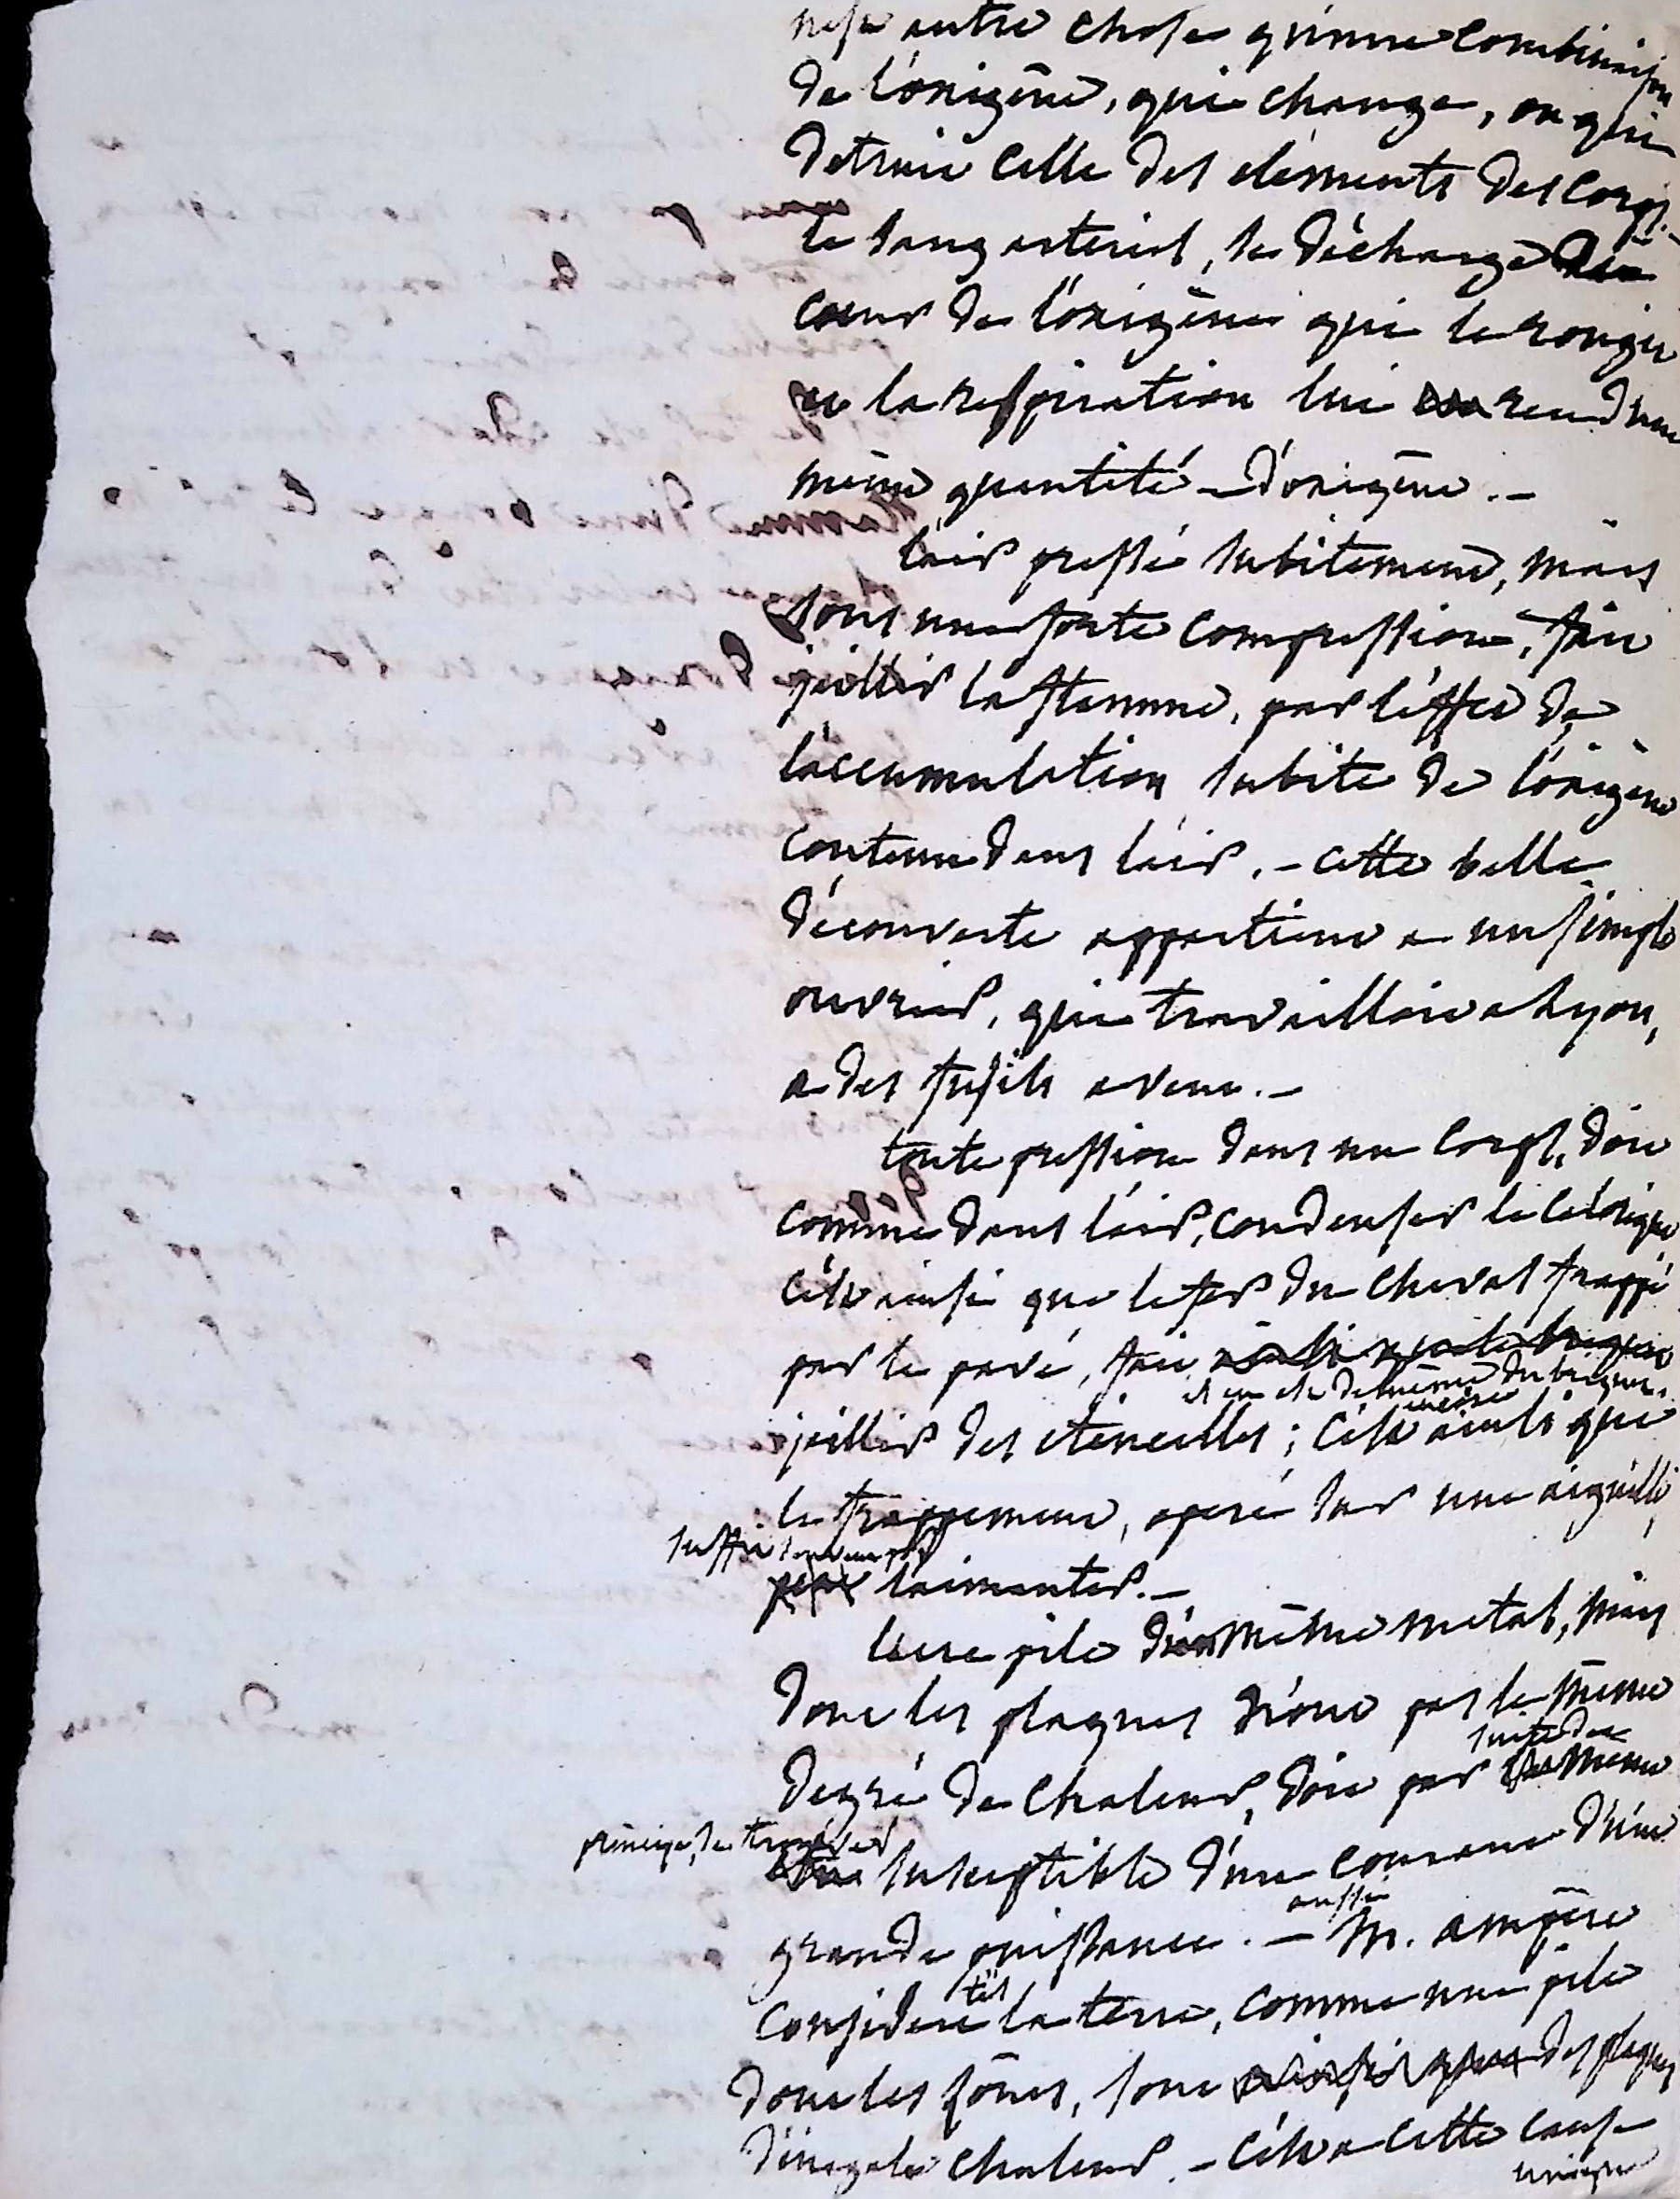 n'est autre chose qu'une combinaison
de l'oxigène, qui change, ou qui
detruit celle des elements des corps.-
le sang arteriel, se décharge au
cœur de l'oxigène qui le rougit
et la respiration lui rend une
même quantité d'oxigène.-
l'air pressé subitement, mais
sous une forte compression, fait
jaillir la flamme, par l'effet de
l'accumulation subite de l'oxigène
contenu dans l'air.- cette belle
découverte appartient a un simple
ouvrier, qui travailloit a Lyon,
a des fusils a vent.-
toute pression dans un corps, doit
comme dans l'air, condenser le calorique
c'est ainsi que le fer du cheval frappé
par le pavé, fait
il en est de même du briquet.
jaillir des etincelles; c'est encore ainsi que
le frappement, operé sur une aiguille,
suffit souvent pour
l'aimanter.-
une pile d'un même metal, mais
dont les plaques n'ont pas le même
degré de chaleur, doit par suite du même
principe, se trouver
susceptible d'un courant d'une
grande puissance.- aussi M. ampère
considere t'il la terre, comme une pile
dont les zônes, sont des plaques
d'inegale chaleur.- c'est a cette cause
unique